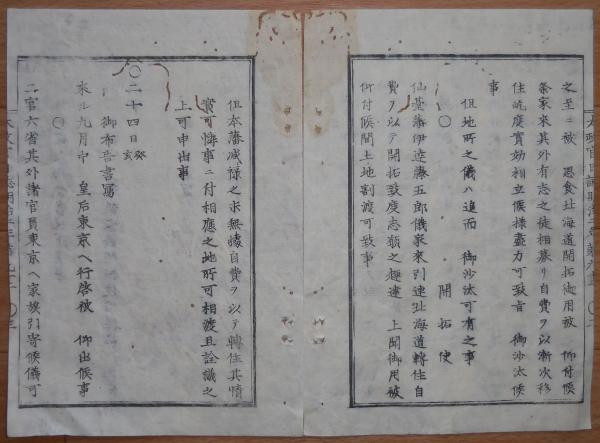 之至ニ被　思食北海道開拓御用被　仰付候
条家来其外有志之徒相募リ自費ヲ以漸次移
住屹度實効相立候様盡力可致旨　御沙汰候
事
但地所之儀ハ追而　御沙汰可有之事
〇　開拓使
仙臺藩伊達藤五郎儀家来引連北海道轉住自
費ヲ以テ開拓致度志願之趣達　上聞御用被
仰付候間土地割渡可致事
但本藩减禄之末無據自費ヲ以テ轉住其情
實可憐事ニ付相應之地所可相渡且詮議之
上可申出事
〇二十四日癸亥
御布告書寫
来ル九月中　皇后東京ヘ行啓被　仰出候事
〇
二官六省其外諸官員東京ヘ家族引寄候儀可